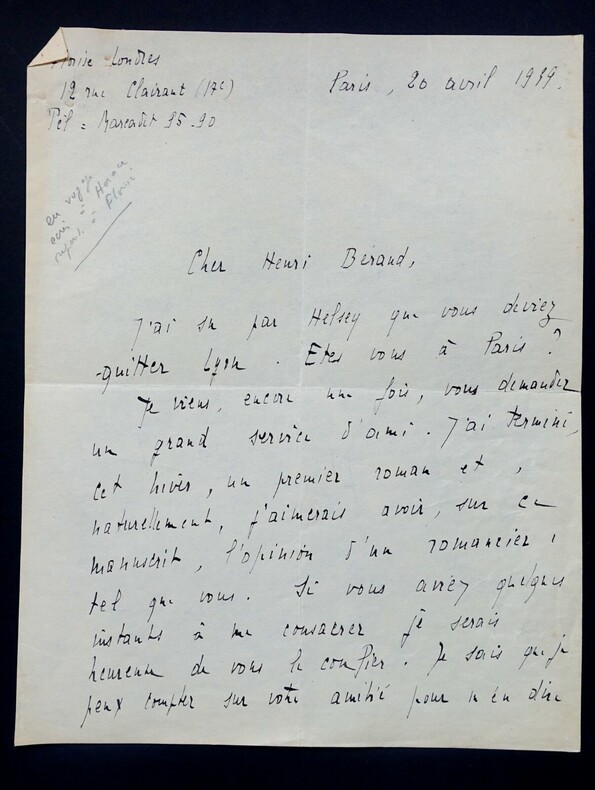 Londres
12 rue Clairaut (17e)
Tél = Marcadet 95.90
Paris, 20 avril 1939.
en voyage
écrire à Horace
Cher Henri Béraud,
J'ai su par Helsey que vous deviez
quitter Lyon. Etes vous à Paris ?
Je viens, encore une fois, vous demander
un grand service d'ami. J'ai terminé,
cet hiver, un premier roman et,
naturellement, j'aimerais avoir, sur ce
manuscrit, l'opinion d'un romancier,
tel que vous. Si vous aviez quelques
instants à me consacrer je serais
heureuse de vous le confier. Je sais que je
peux compter sur votre amitié pour m'en dire